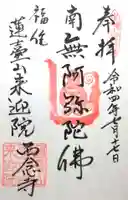 奉拝
令和四年七月七日
南無阿弥陀佛
福住
蓮臺山来迎院
西念寺